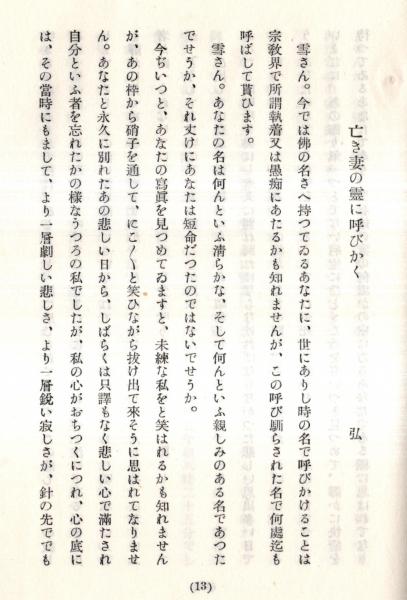 亡き妻の靈に呼びかく
弘
雪さん。今では佛の名さへ持つてゐるあなたに、世にありし時の名で呼びかけることは
宗敎界で所謂執着又は愚痴にあたるかも知れませんが、この呼び馴らされた名で何處迄も
呼ばして貰ひます。
雪さん。あなたの名は何んといふ淸らかな、そして何んといふ親しみのある名であつた
でせうか、それ丈けにあなたは短命だつたのではないでせうか。
今ぢいつと、あなたの寫眞を見つめてゐますと、未練な私をと笑はれるかも知れません
が、あの枠から硝子を通して、にこ〳〵と笑ひながら拔け出て來そうに思はれてなりませ
ん。あなたと永久に別れたあの悲しい日から、しばらくは只譯もなく悲しい心で滿たされ
自分といふ者を忘れたかの樣なうつろの私でしたが、私の心がおちつくにつれ、心の底に
は、その當時にもまして、より一層劇しい悲しさ、より一層銳い寂しさが、針の先ででも
(13)